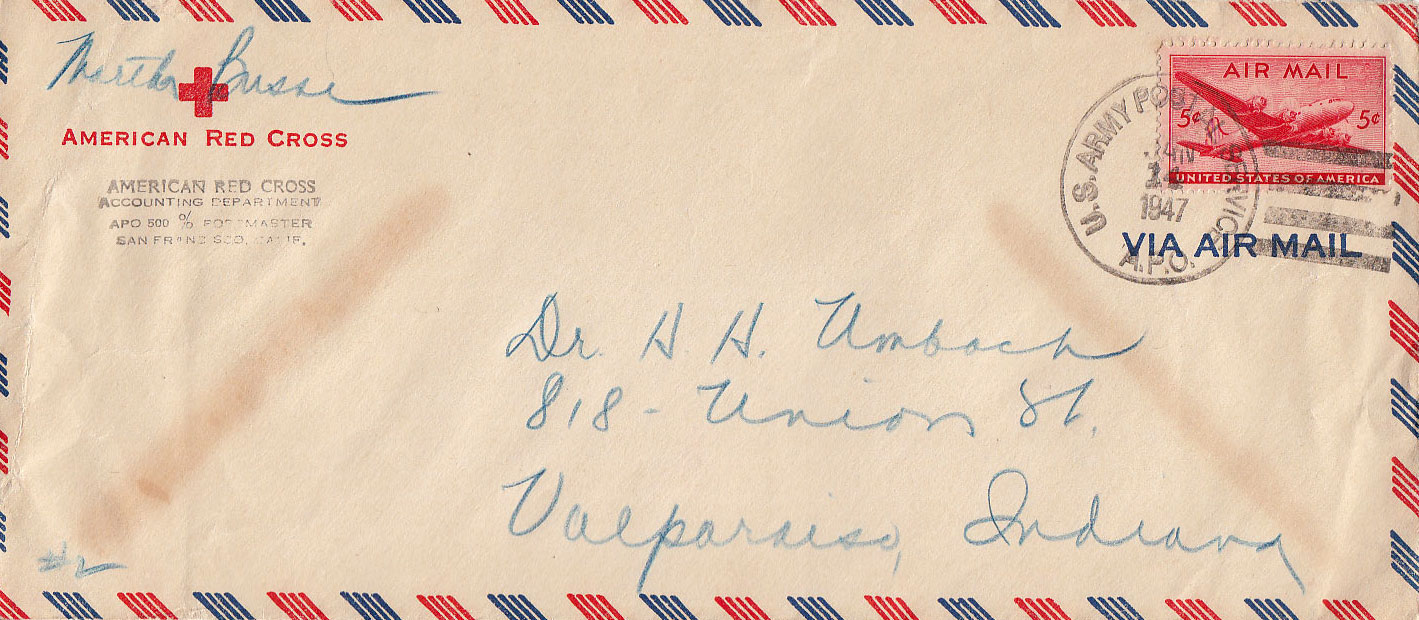 Martha Busse
AMERICAN RED CROSS
AMERICAN RED CROSS
ACCOUNTING DEPARTMENT
APO 500 % POSTMASTER
SAN FRANCISCO, CALIF.
AIR MAIL
5¢ 5¢
UNITED STATES OF AMERICA
U.S. ARMY POSTAL SERVICE
JAN
14
1947
A.P.O.
VIA AIR MAIL
Dr. H. H. Umbach
818 - Union St.
Valparaiso, Indiana
#2